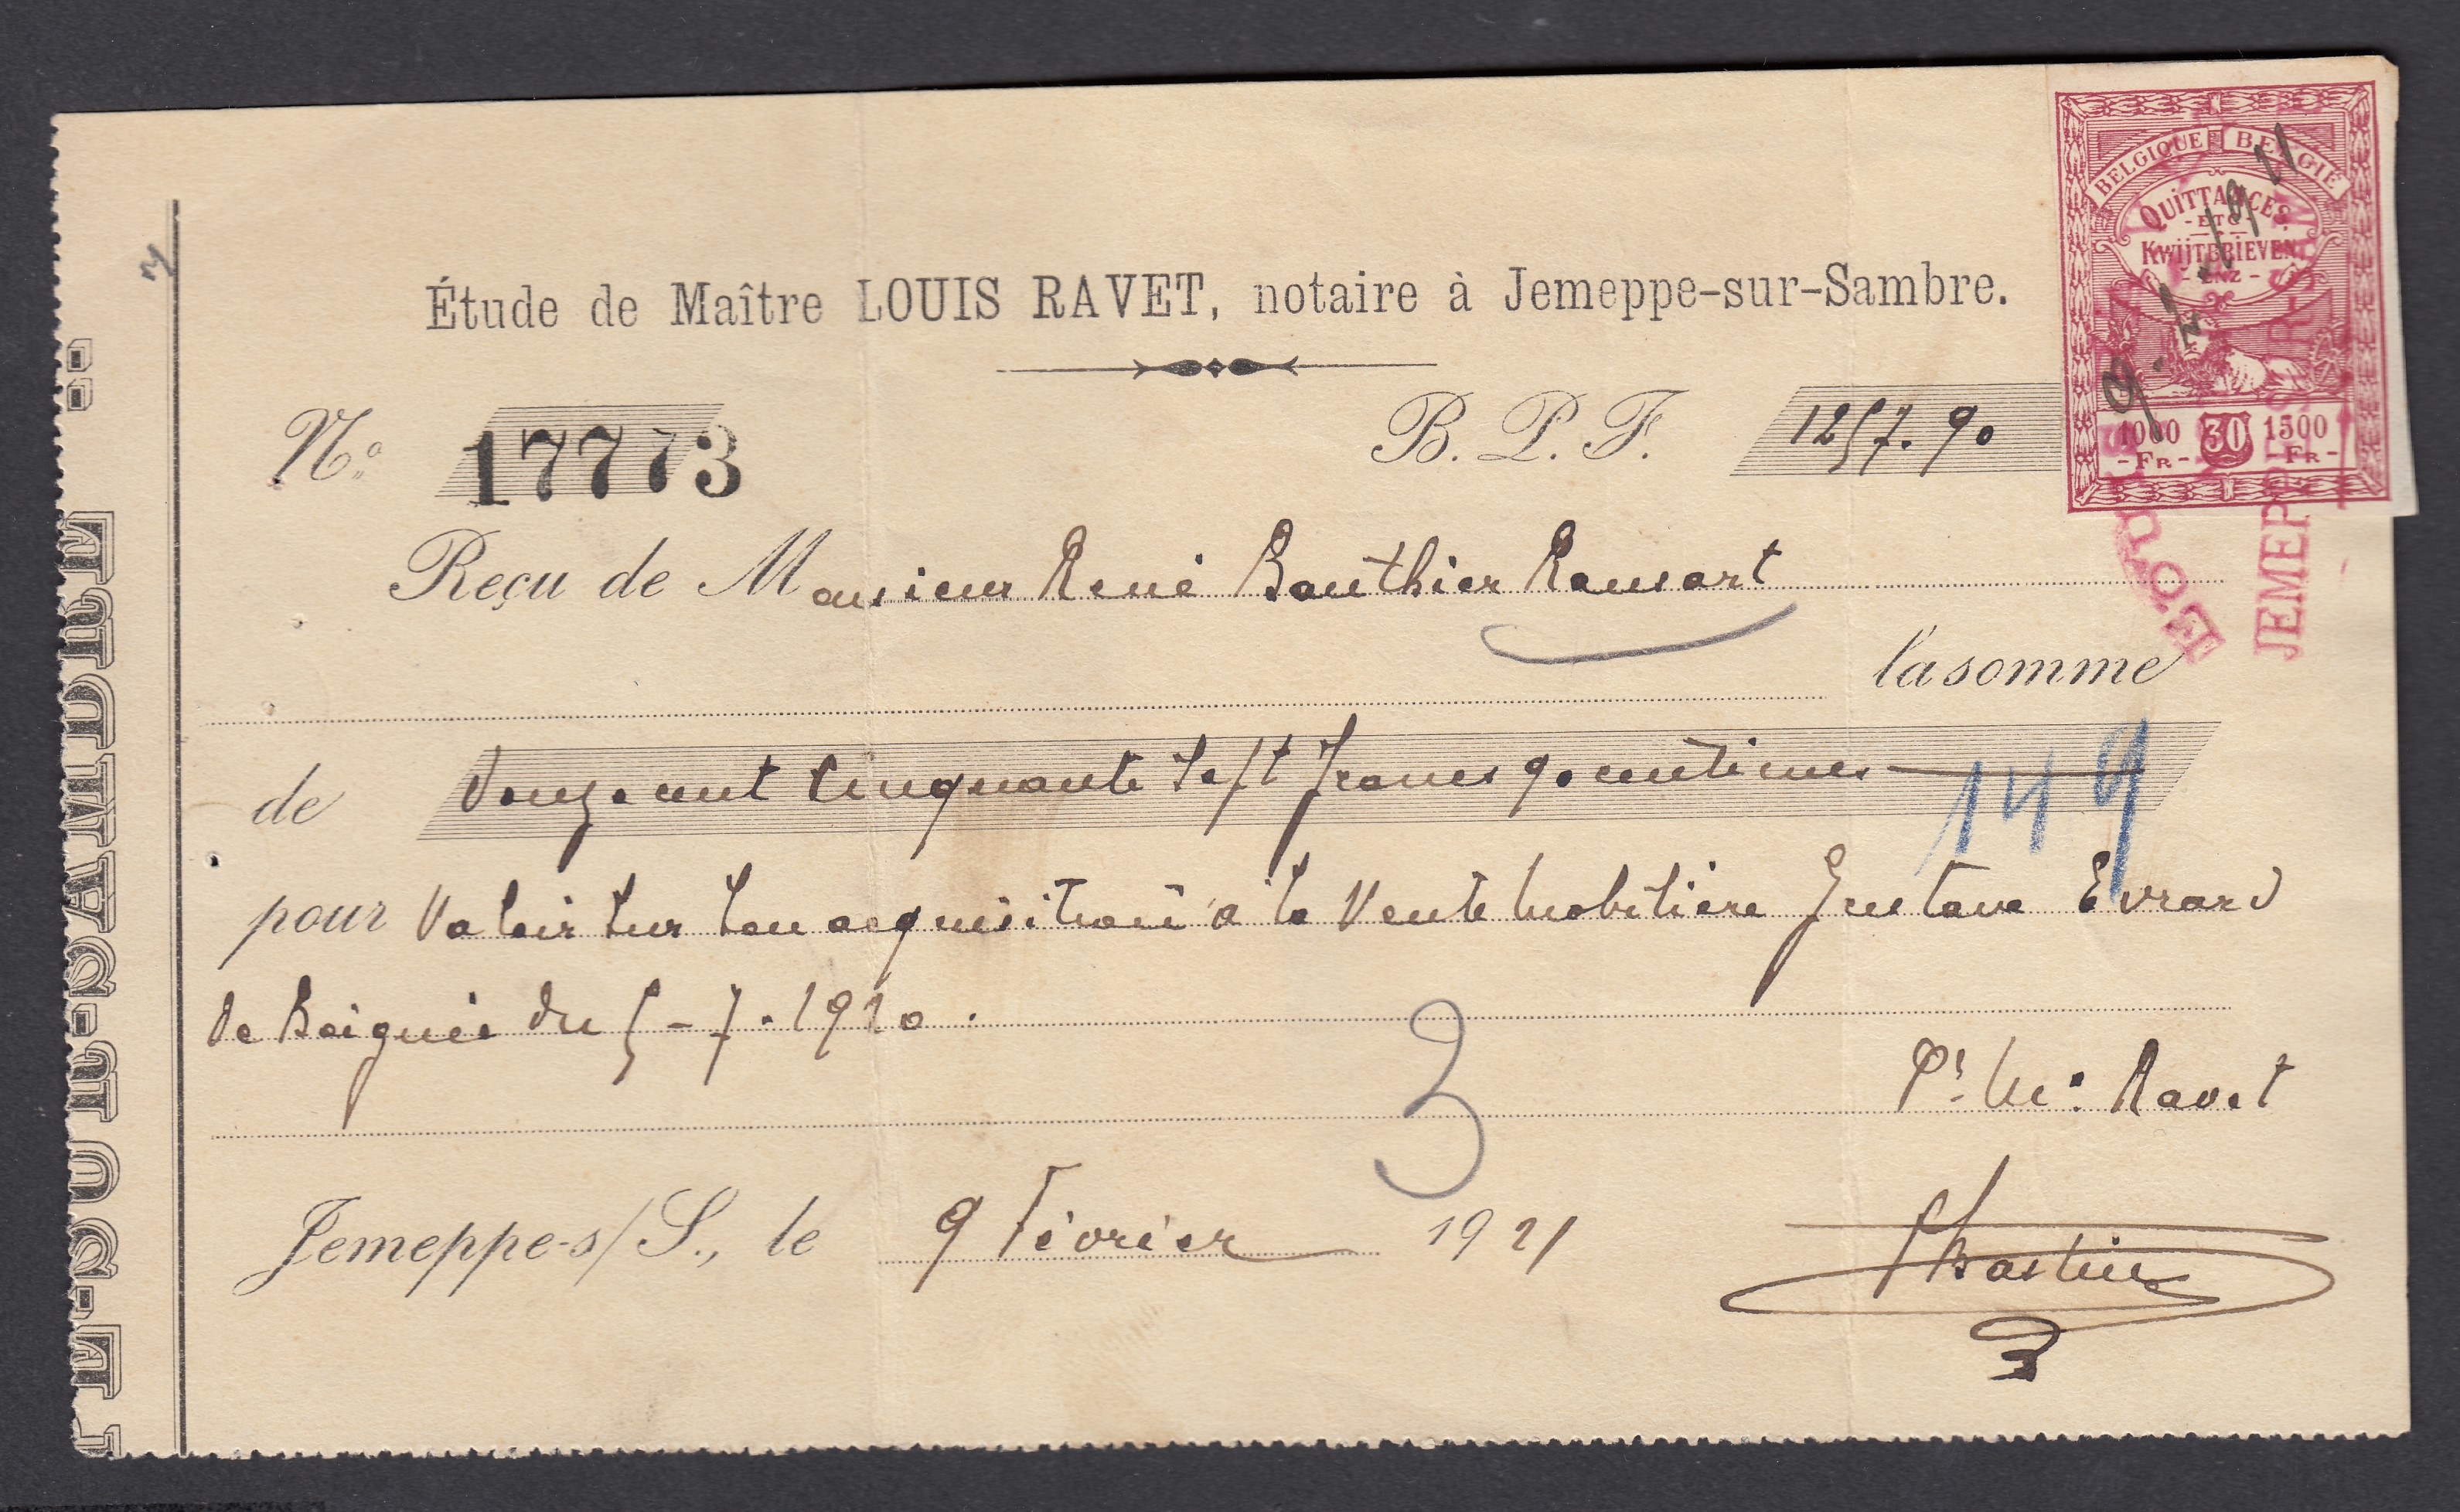 Étude de Maître LOUIS RAVET, notaire à Jemeppe-sur-Sambre.
BELGIQUE BELGIË
QUITTANCES
- ETC -
KWIJTBRIEVEN
- ENZ -
9-2-1921
1000 30 1500
- FR - - FR -
JEMEPPE-SUR-S
N° 17773
B. P. F. 1257.90
Reçu de Monsieur René Bauthier Ransart
la somme
de Douze cent cinquante sept francs 90 centimes
149
pour Valoir sur son acquisition à la Vente mobilière Gustave Evrard
de Boignée du 5-7-1920.
3
Pr Me Ravet
Jemeppe-s/S., le 9 Février 1921
Bastin